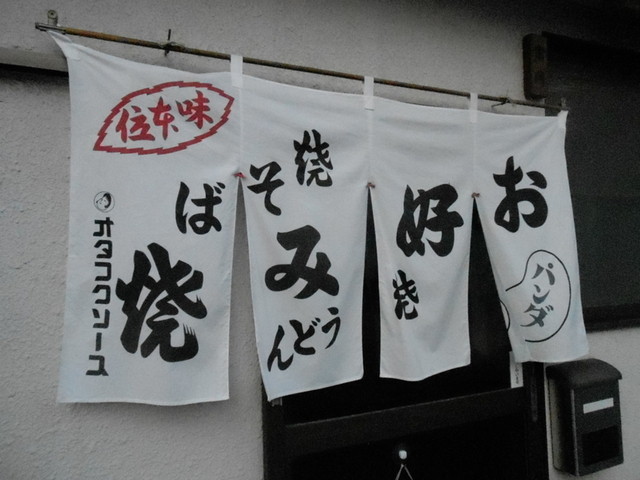 お好み焼
焼そば
焼うどん
パンダ
味本位
オタフクソース